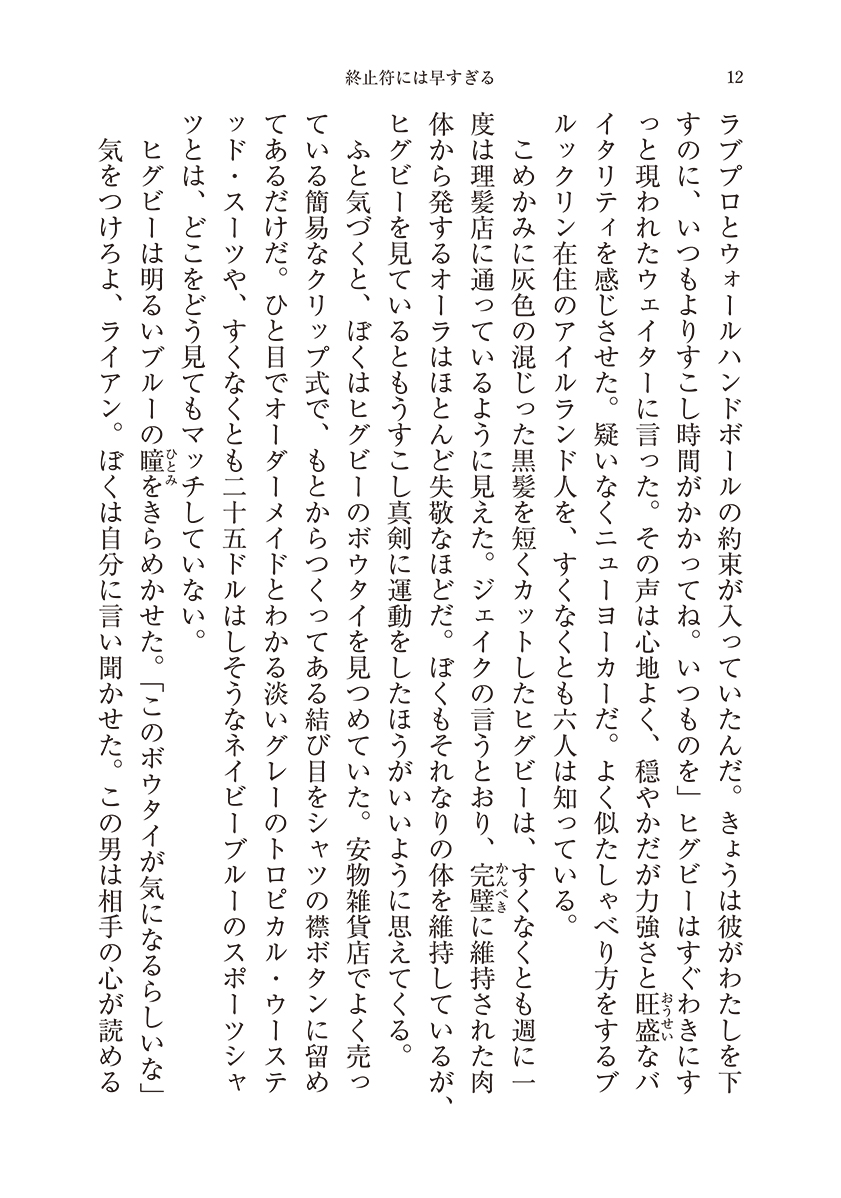 終止符には早すぎる
12
ラブプロとウォールハンドボールの約束が入っていたんだ。きょうは彼がわたしを下
すのに、いつもよりすこし時間がかかってね。いつものを」ヒグビーはすぐわきにす
っと現われたウェイターに言った。その声は心地よく、穏やかだが力強さと旺盛なバ
おうせい
イタリティを感じさせた。疑いなくニューヨーカーだ。よく似たしゃべり方をするブ
ルックリン在住のアイルランド人を、すくなくとも六人は知っている。
こめかみに灰色の混じった黒髪を短くカットしたヒグビーは、すくなくとも週に一
度は理髪店に通っているように見えた。ジェイクの言うとおり、完璧に維持された肉
かんぺき
体から発するオーラはほとんど失敬なほどだ。ぼくもそれなりの体を維持しているが、
ヒグビーを見ているともうすこし真剣に運動をしたほうがいいように思えてくる。
ふと気づくと、ぼくはヒグビーのボウタイを見つめていた。安物雑貨店でよく売っ
ている簡易なクリップ式で、もとからつくってある結び目をシャツの襟ボタンに留め
てあるだけだ。ひと目でオーダーメイドとわかる淡いグレーのトロピカル・ウーステ
ッド・スーツや、すくなくとも二十五ドルはしそうなネイビーブルーのスポーツシャ
ツとは、どこをどう見てもマッチしていない。
ヒグビーは明るいブルーの瞳をきらめかせた。「このボウタイが気になるらしいな」
ひとみ
気をつけろよ、ライアン。ぼくは自分に言い聞かせた。この男は相手の心が読める